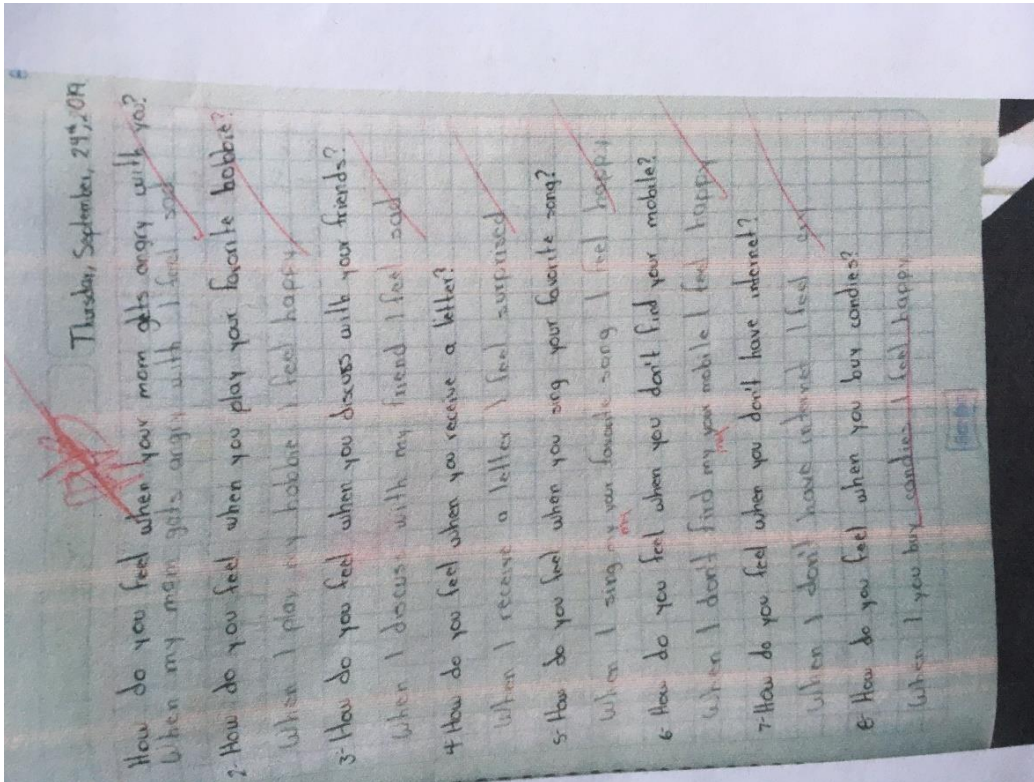 Thursday, September, 24th, 2019
How do you feel when your mom gets angry with yo?
When my mom gets angry with I feel sad
2-How do you feel when you play your favorite hobbie?
When I play my hobbie I feel happy
3-How do you feel when you discuss with your friends?
When I discuss with my friend I feel sad
4 How do you feel when you receive a letter?
When I receive a letter I feel surprised
5-How do you feel when you sing your favorite song?
When I sing my your favorite song I feel happy
my
6 How do you feel when you don't find your mobile?
When I don't find my your mobile I feel happy
my
7-How do you feel when you don't have internet?
When I don't have internet I feel
8-How do you feel when you buy candies?
When I you buy candies I feel happy